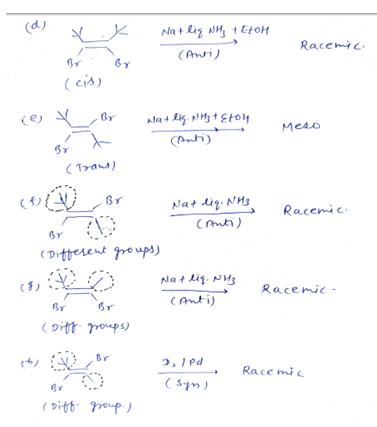 (d) Na + liq NH3 + EtOH
(Anti) Racemic.
Br Br
(cis)
(e) Br Na + liq. NH3 + EtOH
(Anti) Meso
Br
(Trans)
(f) Br Na + liq. NH3
(Anti) Racemic.
Br
(Different groups)
(g) Na + liq. NH3
(Anti) Racemic -
Br Br
(Diff. groups)
(h) Br D2 / Pd
(Syn) Racemic
Br
(Diff. group.)